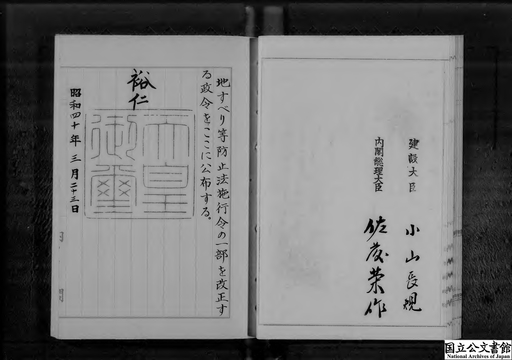 地すべり等防止法施行令の一部を改正す
る政令をここに公布する。
裕仁
天皇
御璽
昭和四十年三月二十三日
建設大臣 小山長規
内閣総理大臣 佐藤榮作
国立公文書館
National Archives of Japan